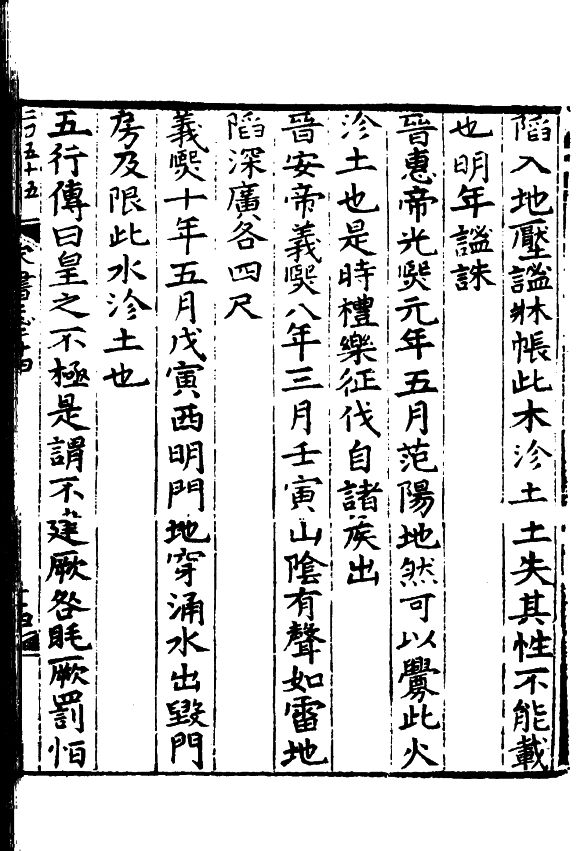 陷入地壓謐牀帳此木沴土土失其性不能載
也明年謐誅
晉惠帝光熈元年五月范陽地然可以爨此火
沴土也是時禮樂征伐自諸矦出
晉安帝義熈八年三月壬寅山陰有聲如雷地
陷深廣各四尺
義熈十年五月戊寅西明門地穿涌水出毀門
扇及限此水沴土也
五行傳曰皇之不極是謂不建厥咎眊厥罰恒